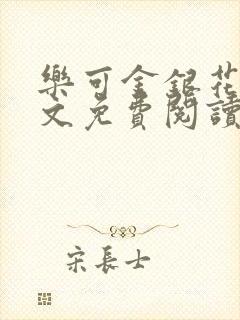 樂可金銀花
文免費閱讀
宋長士